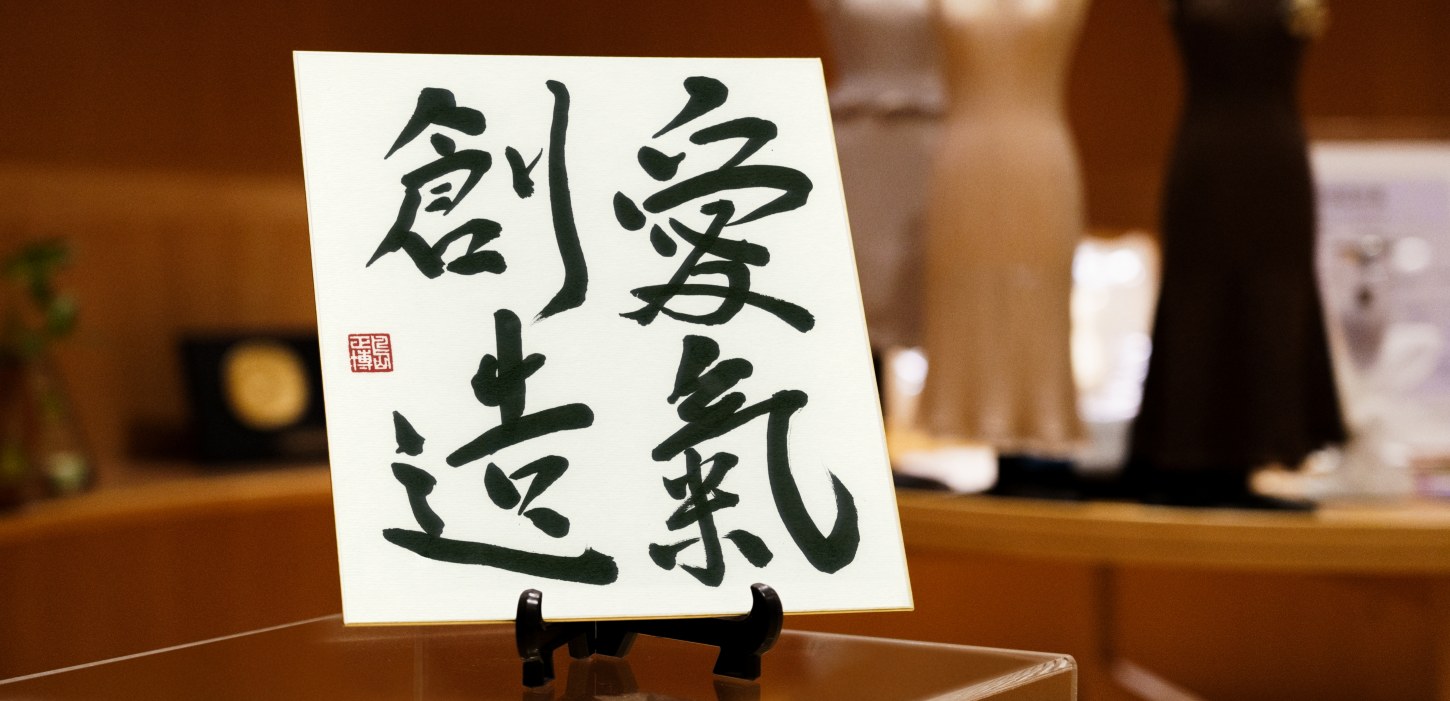 愛氣
創造